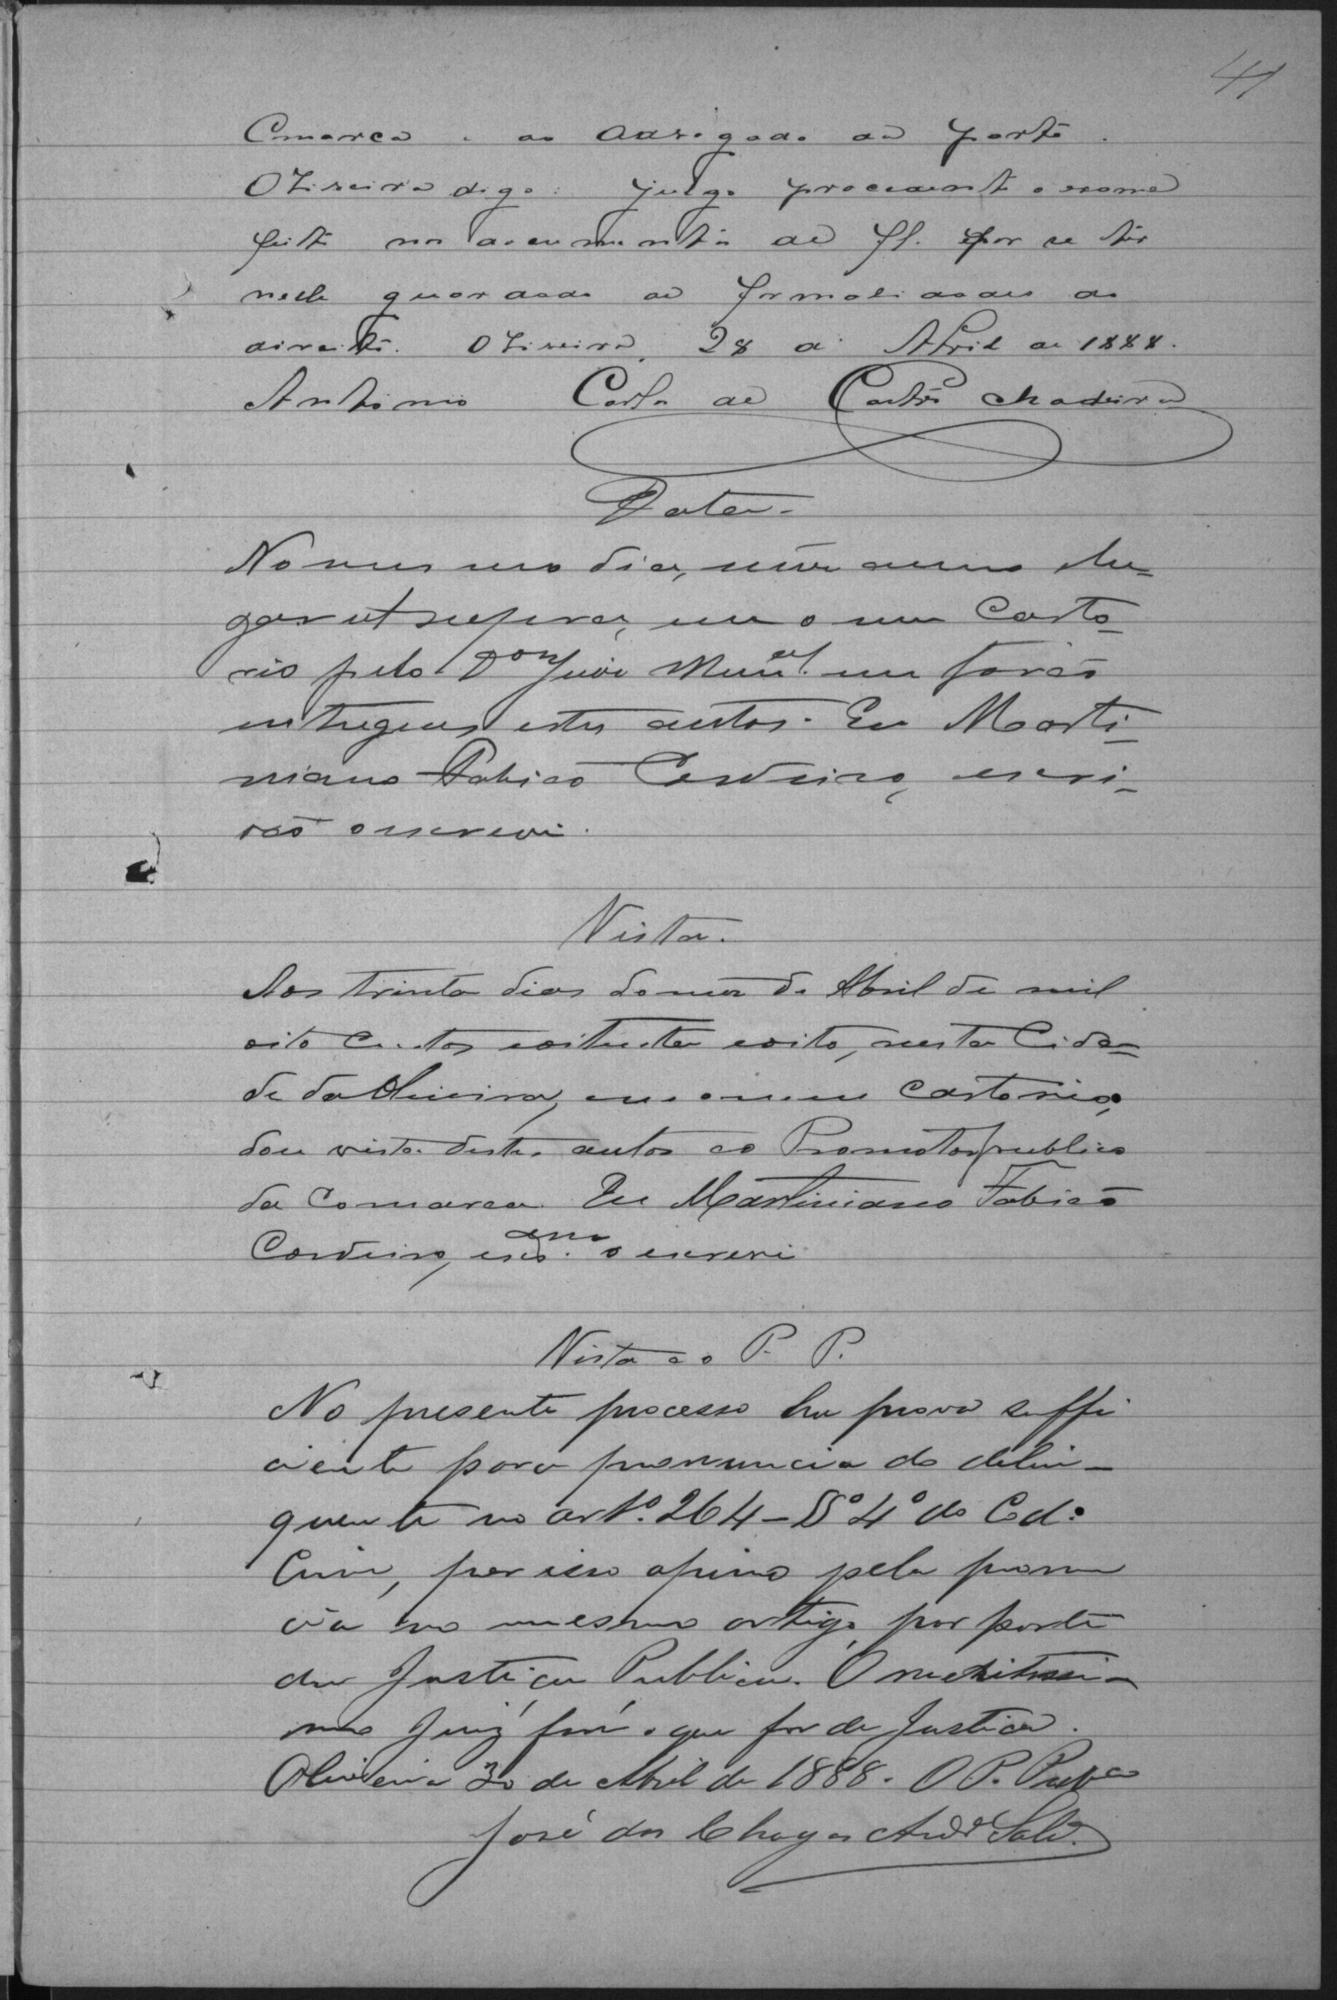 41
Comarca e ao advogado da parte.
Oliveira digo: julgo procedente o exame
feito no documento de fl. por se ter
neste guardado as formalidades de
direito. Oliveira, 28 de Abril de 1888.
Antonio Carlos de Castro Madeira
Data.
No mesmo dia, mez anno e lu-
gar ut supra, em o meu Carto-
rio pelo Dor Juiz Munal. me forão
entregues estes autos. Eu Marti-
niano Fabião Cordeiro, escri-
vão o escrevi.
Vista.
Aos trinta dias do mez de Abril de mil
oito centos e oitenta e oito, nesta Cida-
de da Oliveira, em o meu Cartorio,
dou vista destes autos ao Promotor publico
da Comarca. Eu Martiniano Fabião
Cordeiro, escam. o escrevi
Vista ao P. P.
No presente processo ha prova suffi
ciente para pronuncia do delin-
quente no artº. 264 - § 4º do Codº
Crim, por isso opino pela pronun
cia no mesmo artigo, por parte
da Justiça Publica. O meritissi-
mo Juiz fará o que for de Justiça.
Oliveira 30 de Abril de 1888. O P. Pubco
José das Chagas Andre Salo.